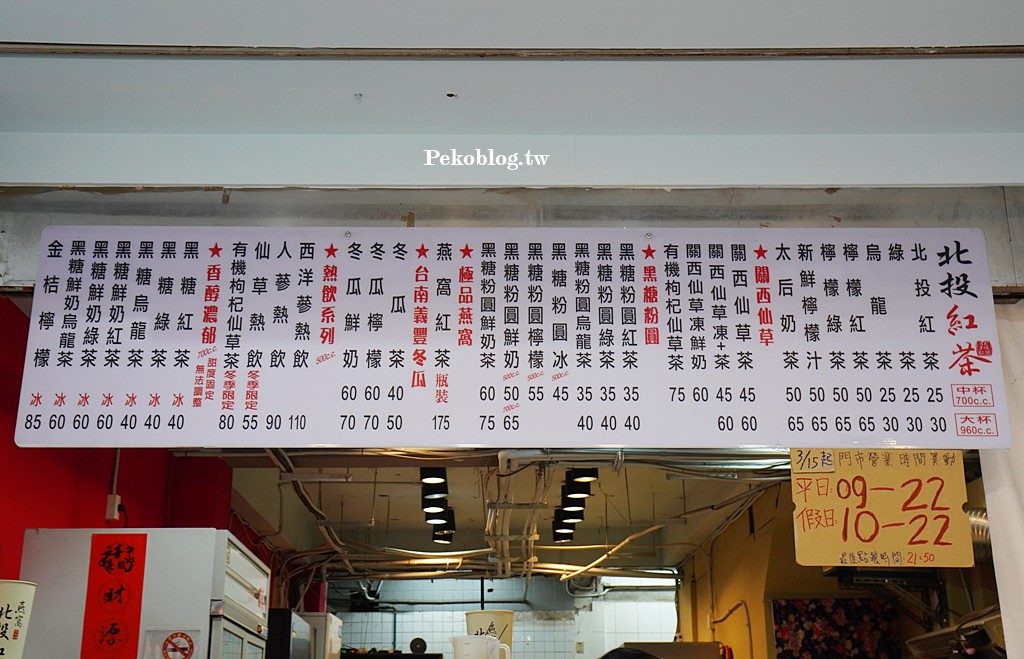 Pekoblog.tw
北投紅茶
中杯 700c.c.
大杯 960c.c.
北投紅茶 25 30
綠茶 25 30
烏龍茶 25 30
檸檬紅茶 50 65
檸檬綠茶 50 65
新鮮檸檬汁 50 65
太后奶茶 50 65
★關西仙草
關西仙草茶 45 60
關西仙草凍+茶 45 60
關西仙草凍鮮奶 60
有機枸杞仙草茶 75
★黑糖粉圓
黑糖粉圓紅茶 35 40
黑糖粉圓綠茶 35 40
黑糖粉圓烏龍茶 35 40
黑糖粉圓冰 500c.c. 45
黑糖粉圓檸檬 500c.c. 55
黑糖粉圓鮮奶 500c.c. 50 700c.c. 65
黑糖粉圓鮮奶茶 60 75
★極品燕窩
燕窩紅茶 瓶裝 175
★台南義豐冬瓜
冬瓜茶 40 50
冬瓜檸檬 60 70
冬瓜鮮奶 60 70
★熱飲系列 500c.c.
西洋蔘熱飲 110
人蔘熱飲 90
仙草熱飲 冬季限定 55
有機枸杞仙草茶 冬季限定 80
★香醇濃郁 700c.c. 甜度固定 無法調整
黑糖紅茶 冰 40
黑糖綠茶 冰 40
黑糖烏龍茶 冰 40
黑糖鮮奶紅茶 冰 60
黑糖鮮奶綠茶 冰 60
黑糖鮮奶烏龍茶 冰 60
金桔檸檬 冰 85
3/15起 門市營業時間異動
平日: 09-22
假日: 10-22
最後點餐時間: 21:50
財源
燕窩
北投紅